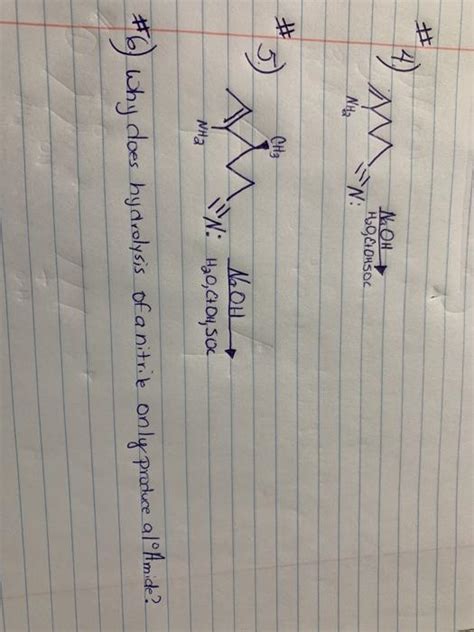 #4.)
NH₂
≡N:
NaOH
H₂O, EtOH, 50C
#5.)
CH₃
NH₂
≡N:
NaOH
H₂O, EtOH, 50C
#6.) Why does hydrolysis of a nitrile only produce a 1° Amide?